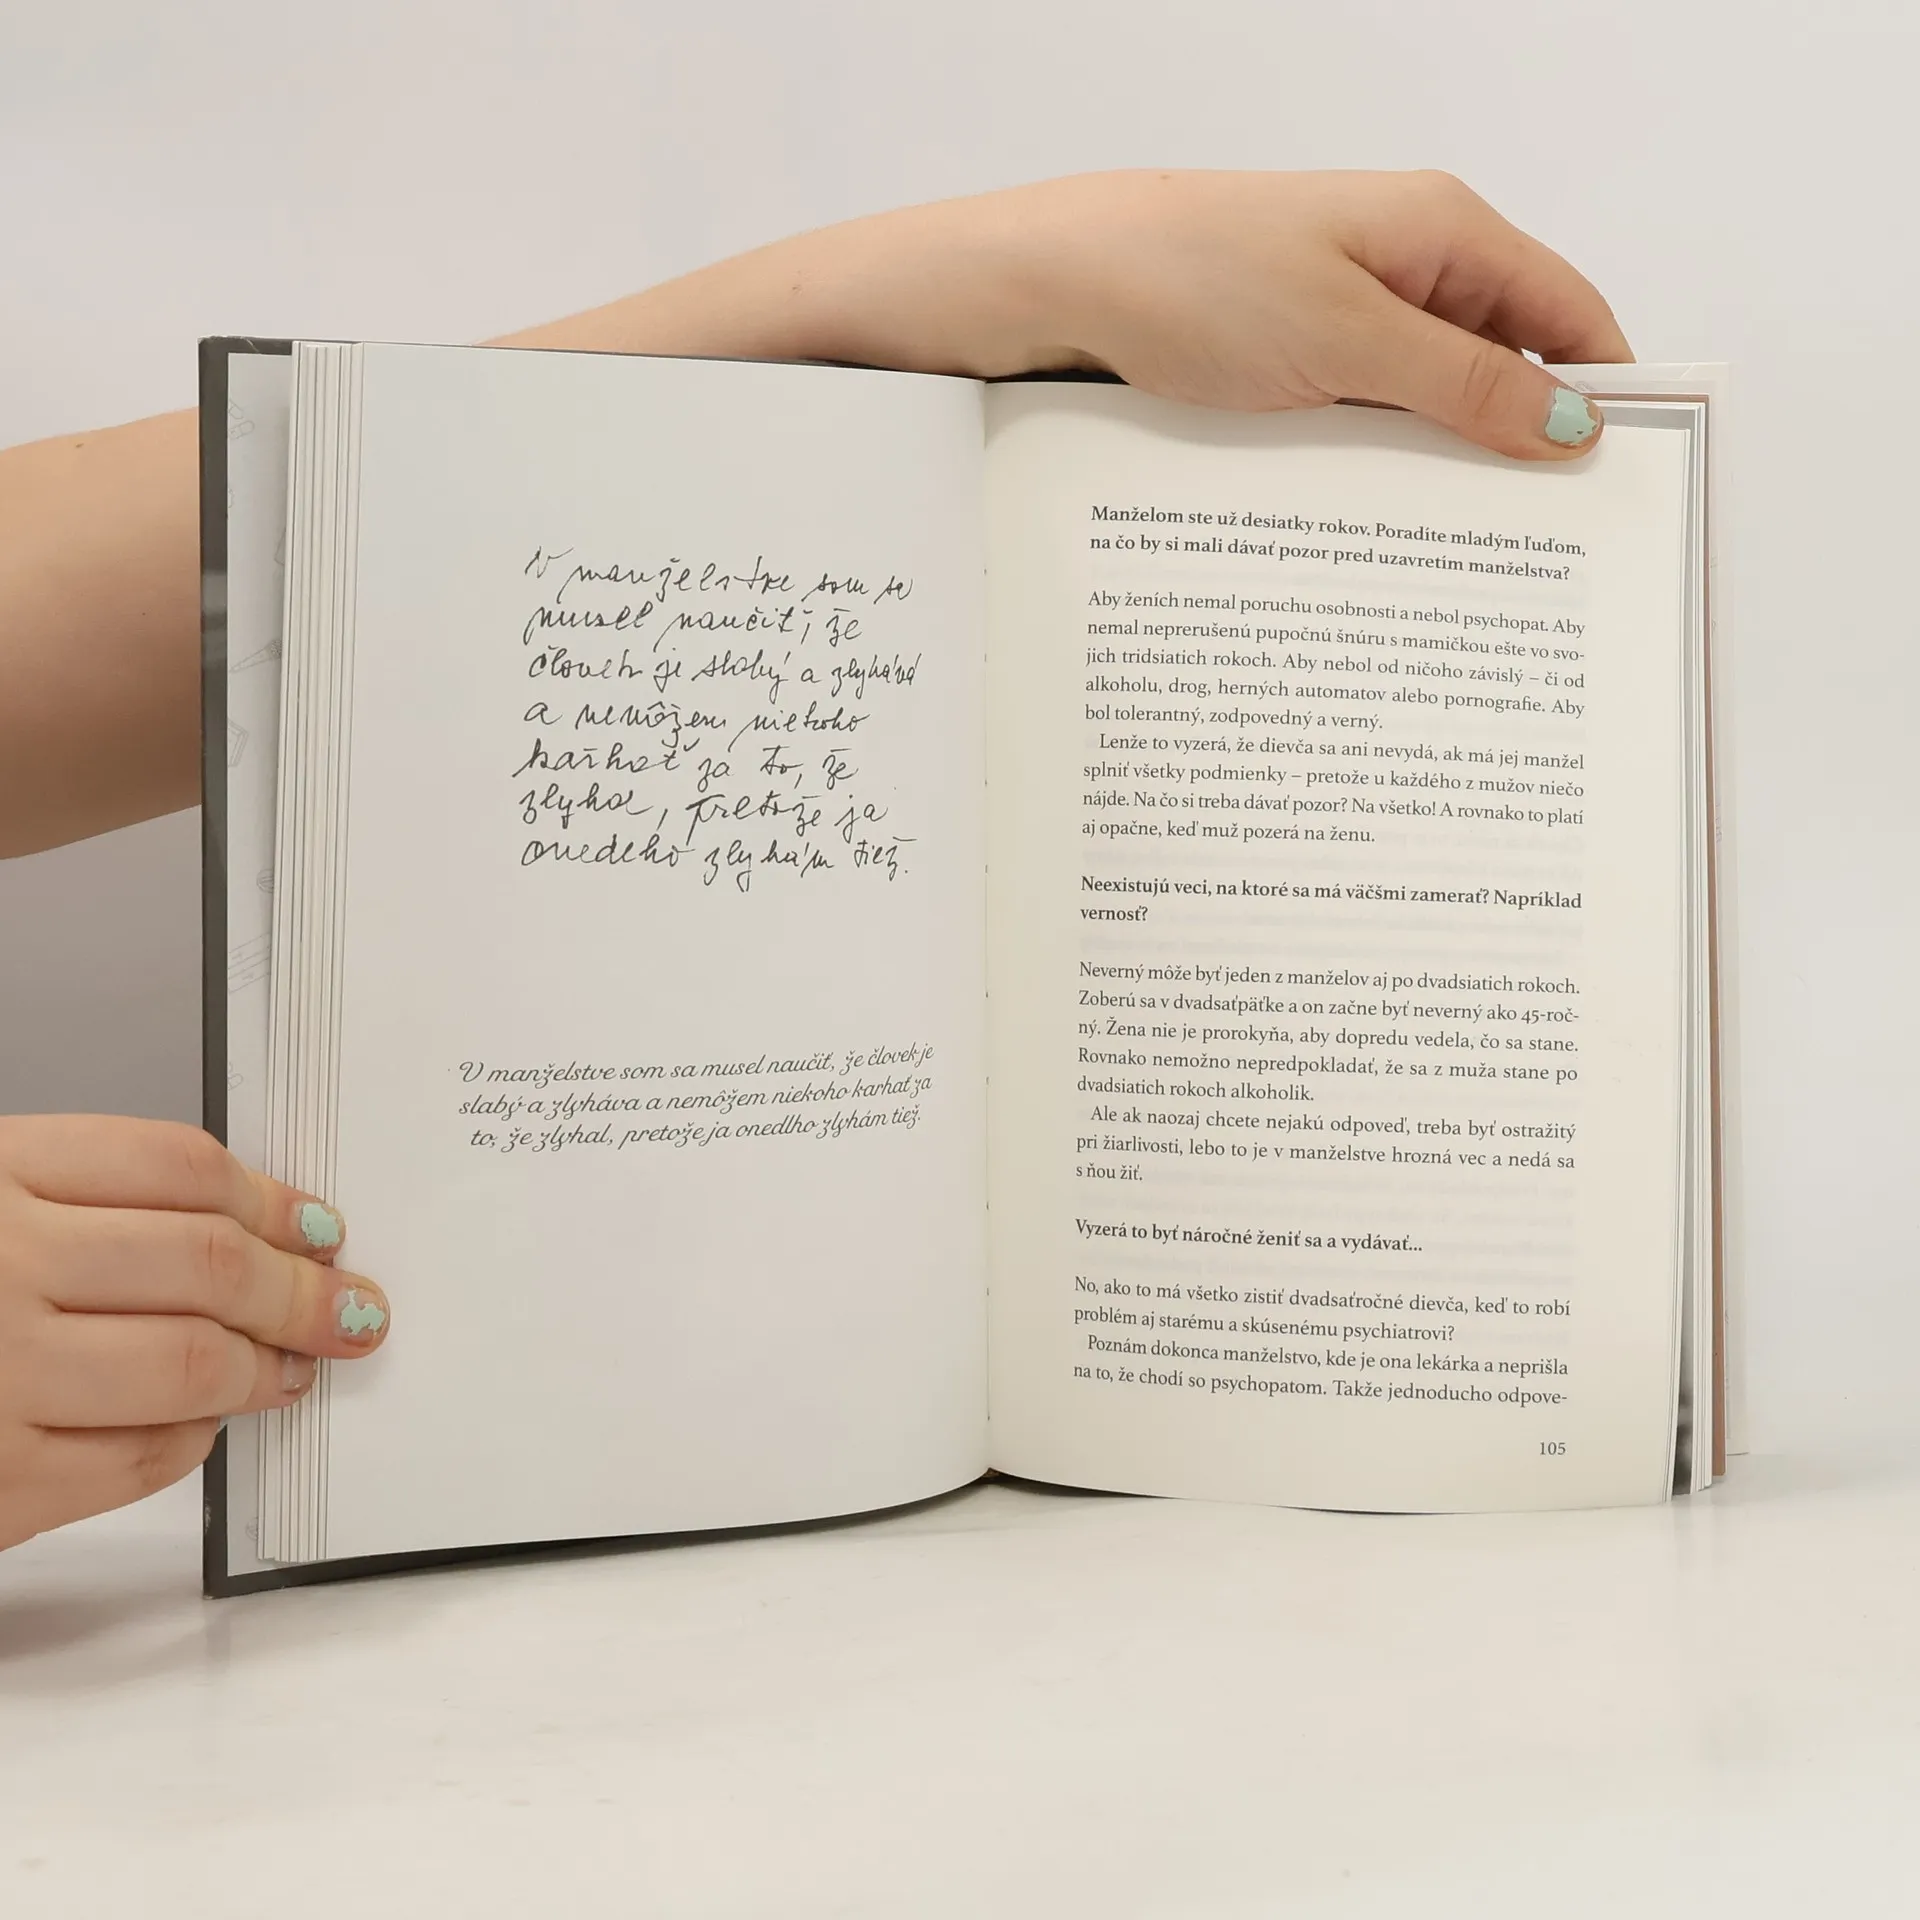 V manželstve som sa
musel naučiť, že
človek je slabý a zlyháva
a nemôžem niekoho
karhať za to, že
zlyhal, pretože ja
onedlho zlyhám tiež.
V manželstve som sa musel naučiť, že človek je
slabý a zlyháva a nemôžem niekoho karhať za
to, že zlyhal, pretože ja onedlho zlyhám tiež.
Manželom ste už desiatky rokov. Poradíte mladým ľuďom,
na čo by si mali dávať pozor pred uzavretím manželstva?
Aby ženích nemal poruchu osobnosti a nebol psychopat. Aby
nemal neprerušenú pupočnú šnúru s mamičkou ešte vo svo-
jich tridsiatich rokoch. Aby nebol od ničoho závislý – či od
alkoholu, drog, herných automatov alebo pornografie. Aby
bol tolerantný, zodpovedný a verný.
Lenže to vyzerá, že dievča sa ani nevydá, ak má jej manžel
splniť všetky podmienky – pretože u každého z mužov niečo
nájde. Na čo si treba dávať pozor? Na všetko! A rovnako to platí
aj opačne, keď muž pozerá na ženu.
Neexistujú veci, na ktoré sa má väčšmi zamerať? Napríklad
vernosť?
Neverný môže byť jeden z manželov aj po dvadsiatich rokoch.
Zoberú sa v dvadsaťpäťke a on začne byť neverný ako 45-roč-
ný. Žena nie je prorokyňa, aby dopredu vedela, čo sa stane.
Rovnako nemožno nepredpokladať, že sa z muža stane po
dvadsiatich rokoch alkoholik.
Ale ak naozaj chcete nejakú odpoveď, treba byť ostražitý
pri žiarlivosti, lebo to je v manželstve hrozná vec a nedá sa
s ňou žiť.
Vyzerá to byť náročné ženiť sa a vydávať...
No, ako to má všetko zistiť dvadsaťročné dievča, keď to robí
problém aj starému a skúsenému psychiatrovi?
Poznám dokonca manželstvo, kde je ona lekárka a neprišla
na to, že chodí so psychopatom. Takže jednoducho odpove-
105